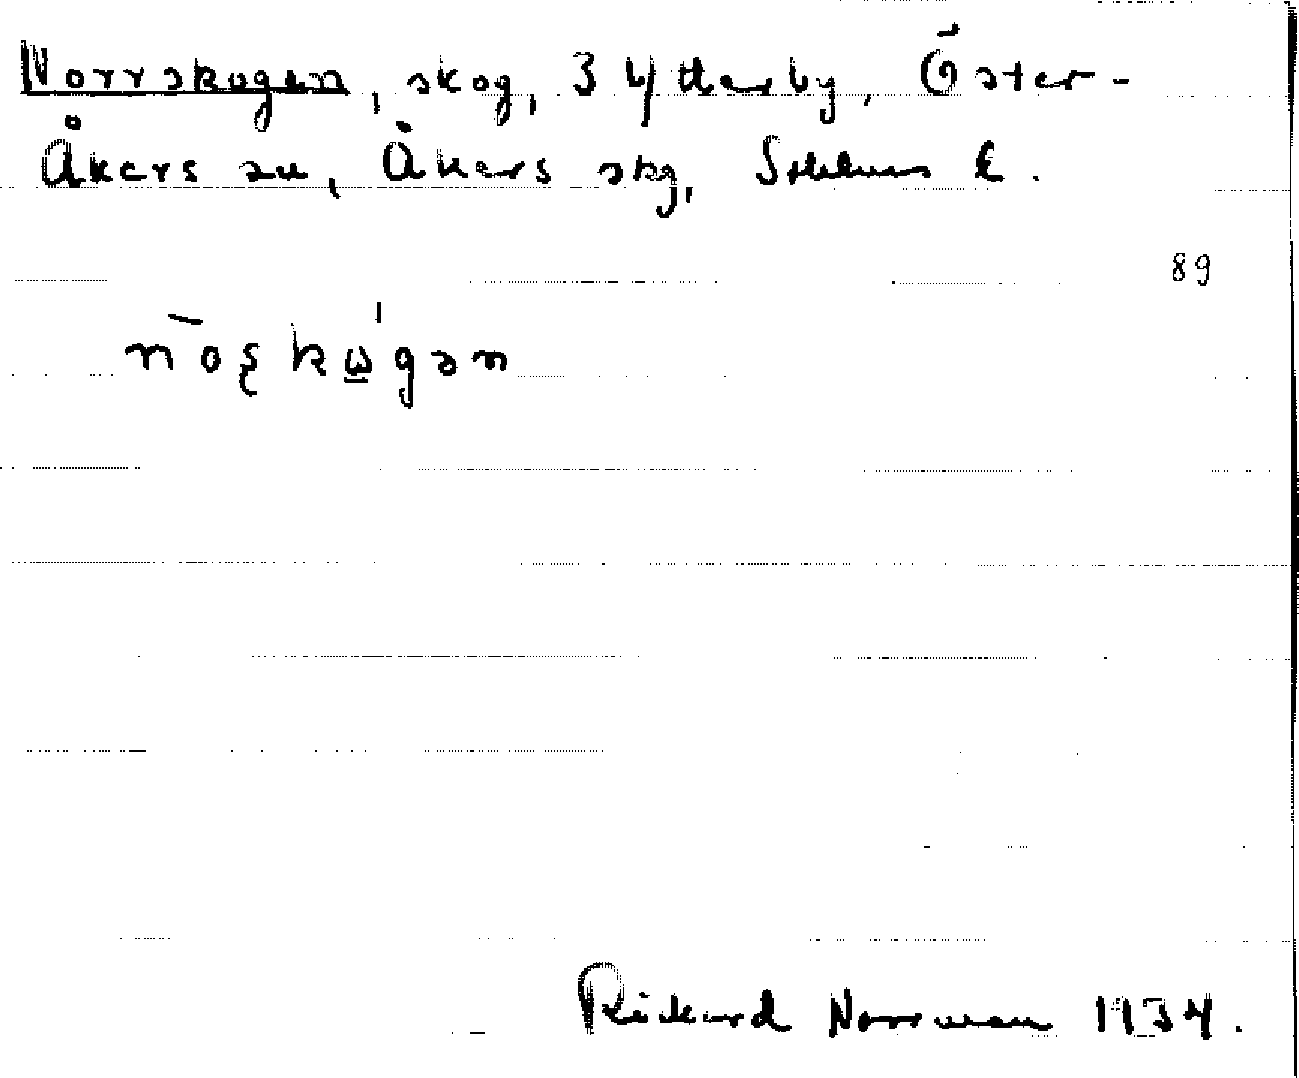 Norrskogen, skog, 3 Ytterby, Öster-
Åkers sn, Åkers skg, Sthlms l.
89
Rickard Norrman 1934.